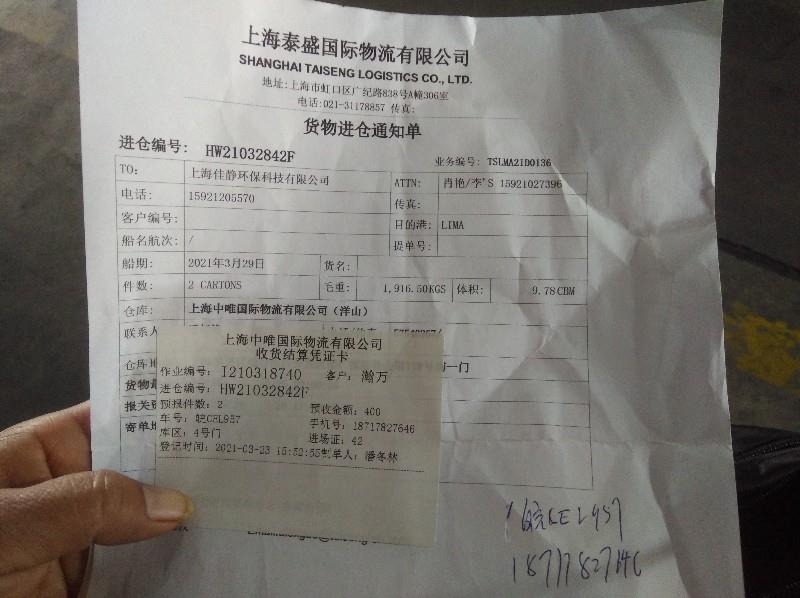 上海泰盛国际物流有限公司
SHANGHAI TAISENG LOGISTICS CO., LTD.
地址:上海市虹口区广纪路838号A幢306室
电话:021-31178857 传真:
货物进仓通知单
进仓编号: HW21032842F
业务编号: TSLMA21D0136
TO: 上海佳静环保科技有限公司 ATTN: 肖艳/李'S 15921027396
电话: 15921205570 传真:
客户编号: 目的港: LIMA
船名航次: / 提单号:
船期: 2021年3月29日 货名:
件数: 2 CARTONS 毛重: 1,916.50KGS 体积: 9.78CBM
仓库: 上海中唯国际物流有限公司（洋山）
联系人
仓库地 一门
货物
报关
寄单地
上海中唯国际物流有限公司
收货结算凭证卡
作业编号: I210318740 客户: 瀚万
进仓编号: HW21032842F
预报件数: 2 预收金额: 400
车号: 手机号: 18717827646
库区: 4号门 进场证: 42
登记时间: 2021-03-23 15:52:55制单人: 潘冬林